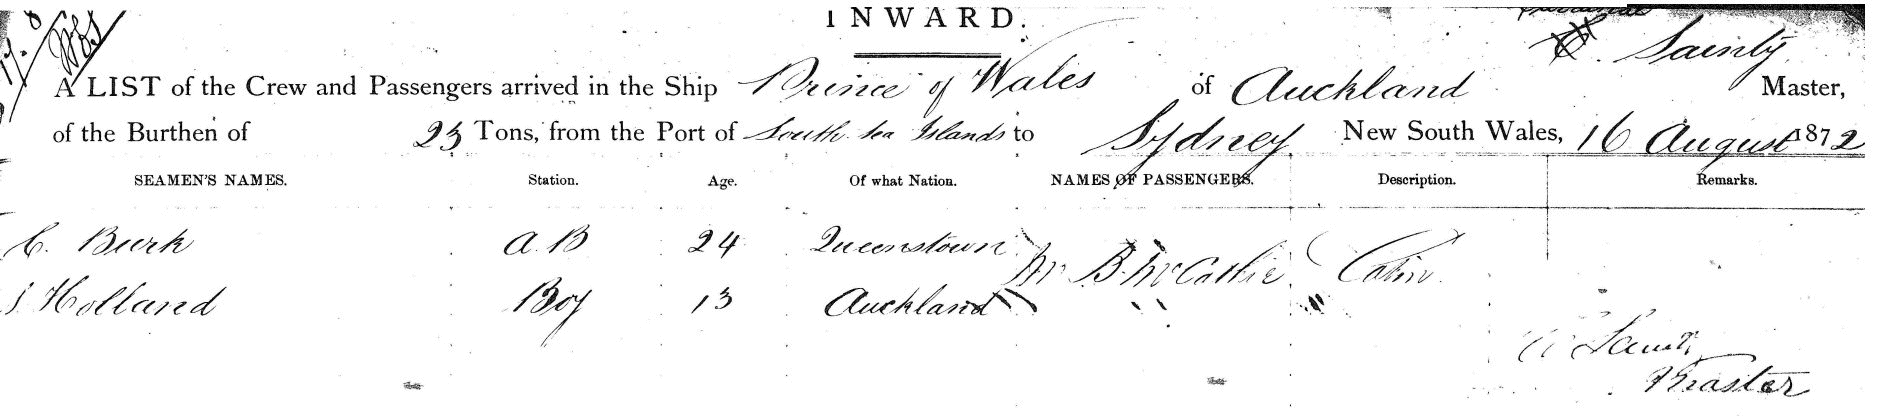 INWARD.
Sainty
A LIST of the Crew and Passengers arrived in the Ship Prince of Wales of Auckland Master,
of the Burthen of 23 Tons, from the Port of South Sea Islands to Sydney New South Wales, 16 August 1872
SEAMEN'S NAMES. Station. Age. Of what Nation. NAMES OF PASSENGERS. Description. Remarks.
C. Burk A.B 24 Queenstown
Mr B. McCathie Cabin
Holland Boy 13 Auckland
Master